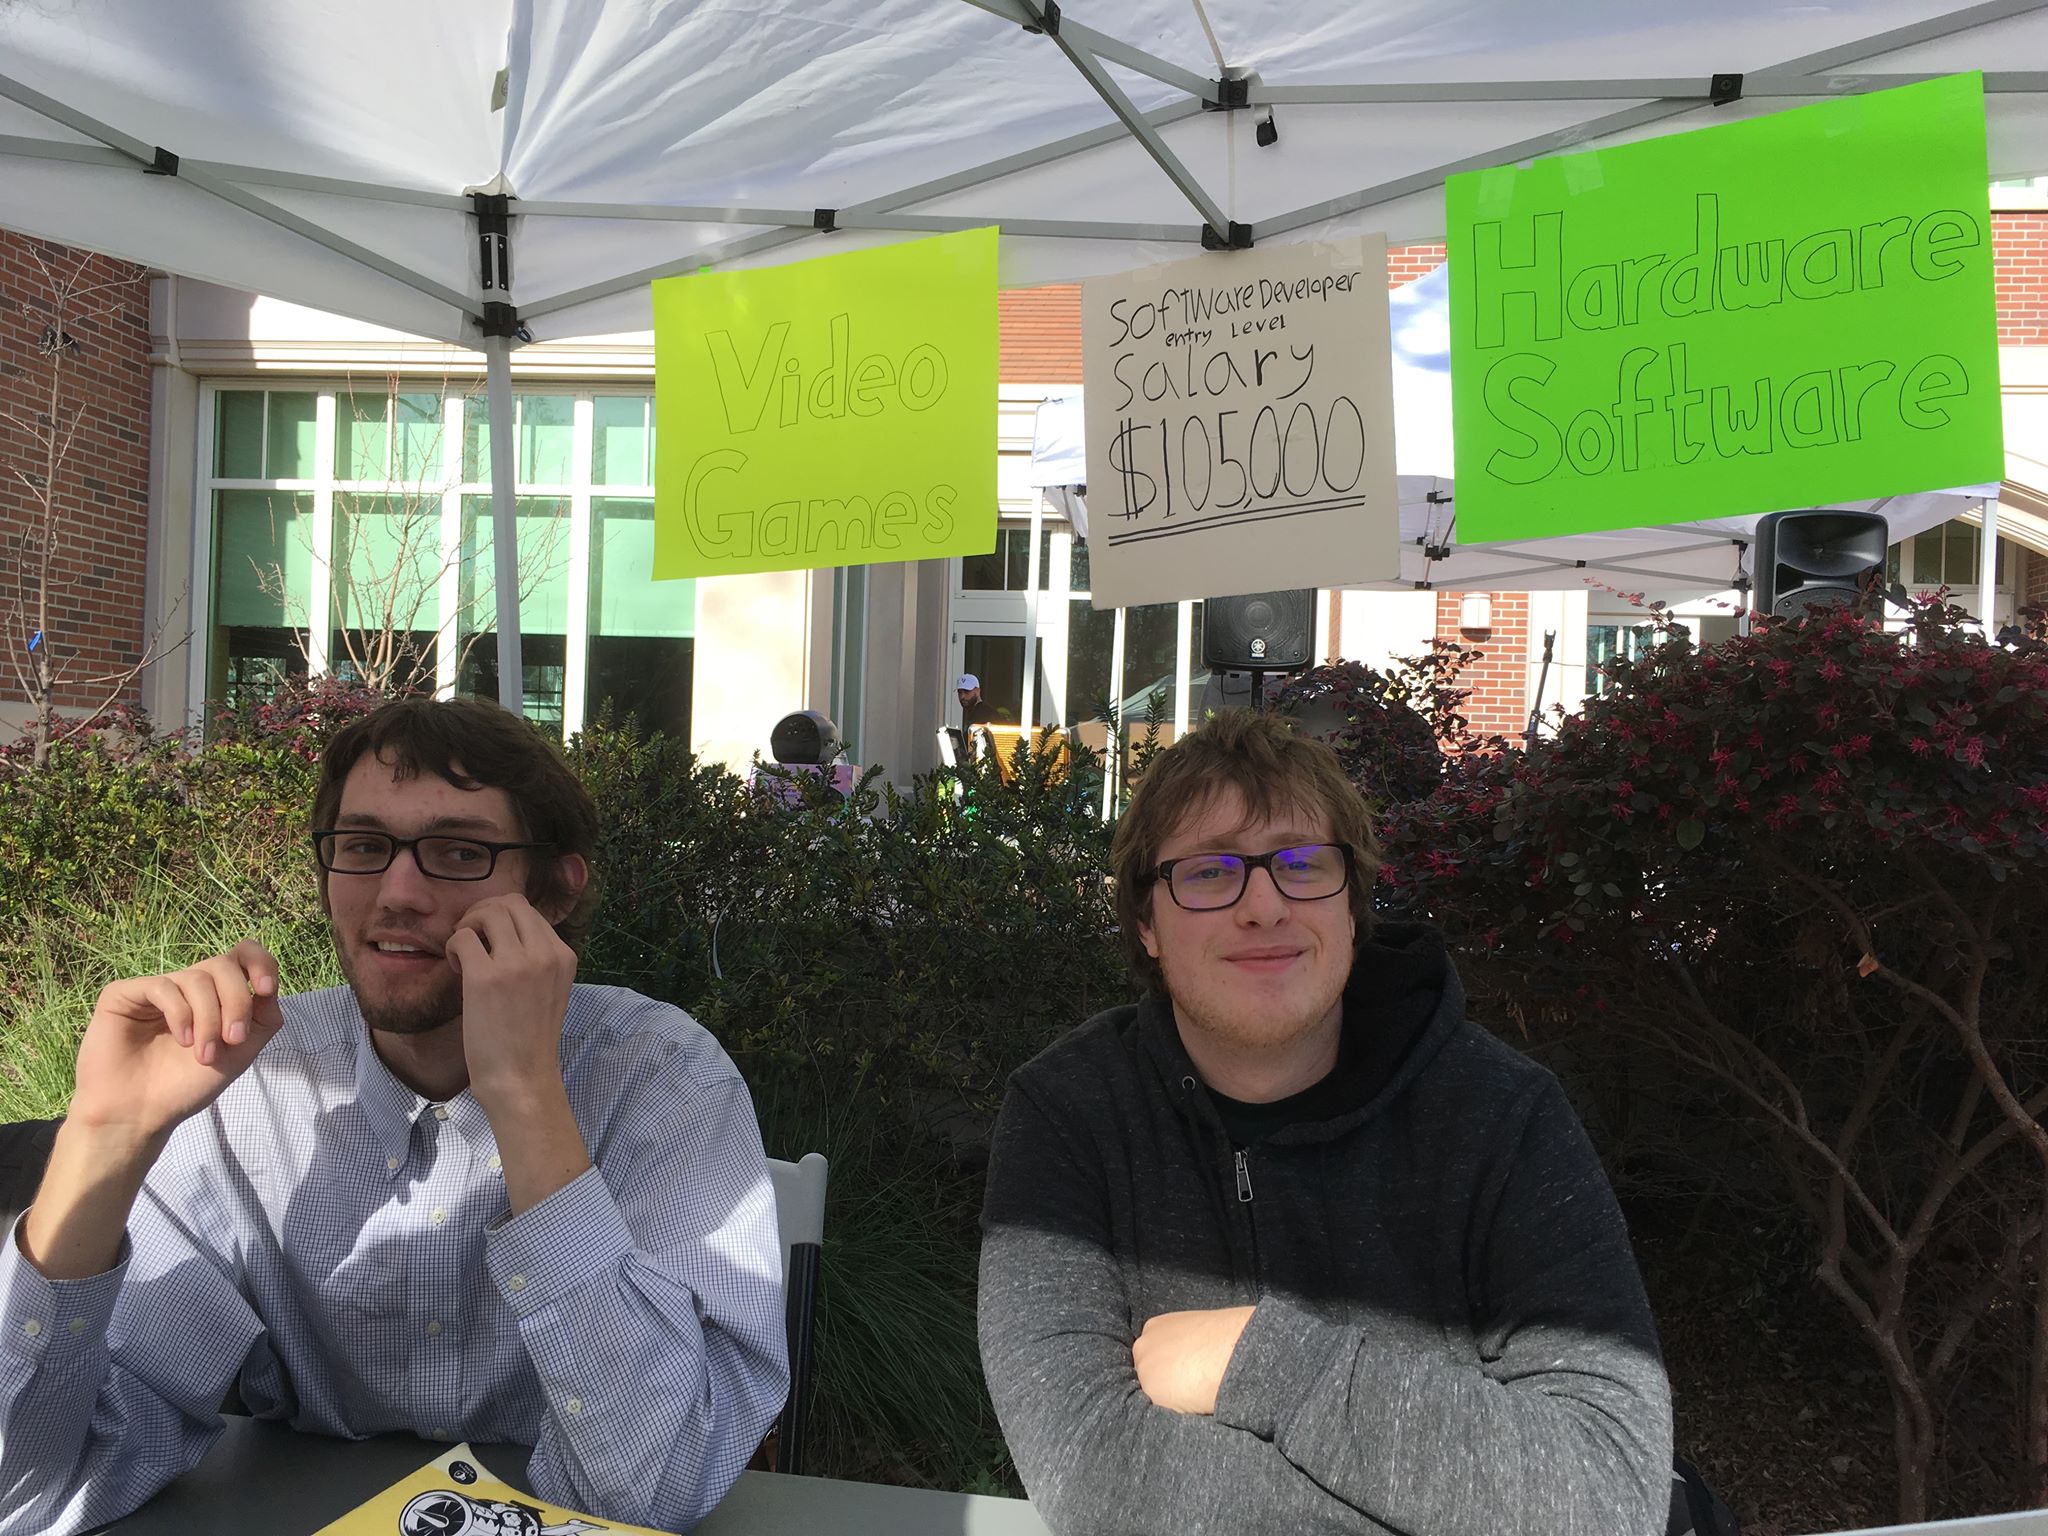 Video
Games
Software Developer
entry Level
Salary
$105,000
Hardware
Software